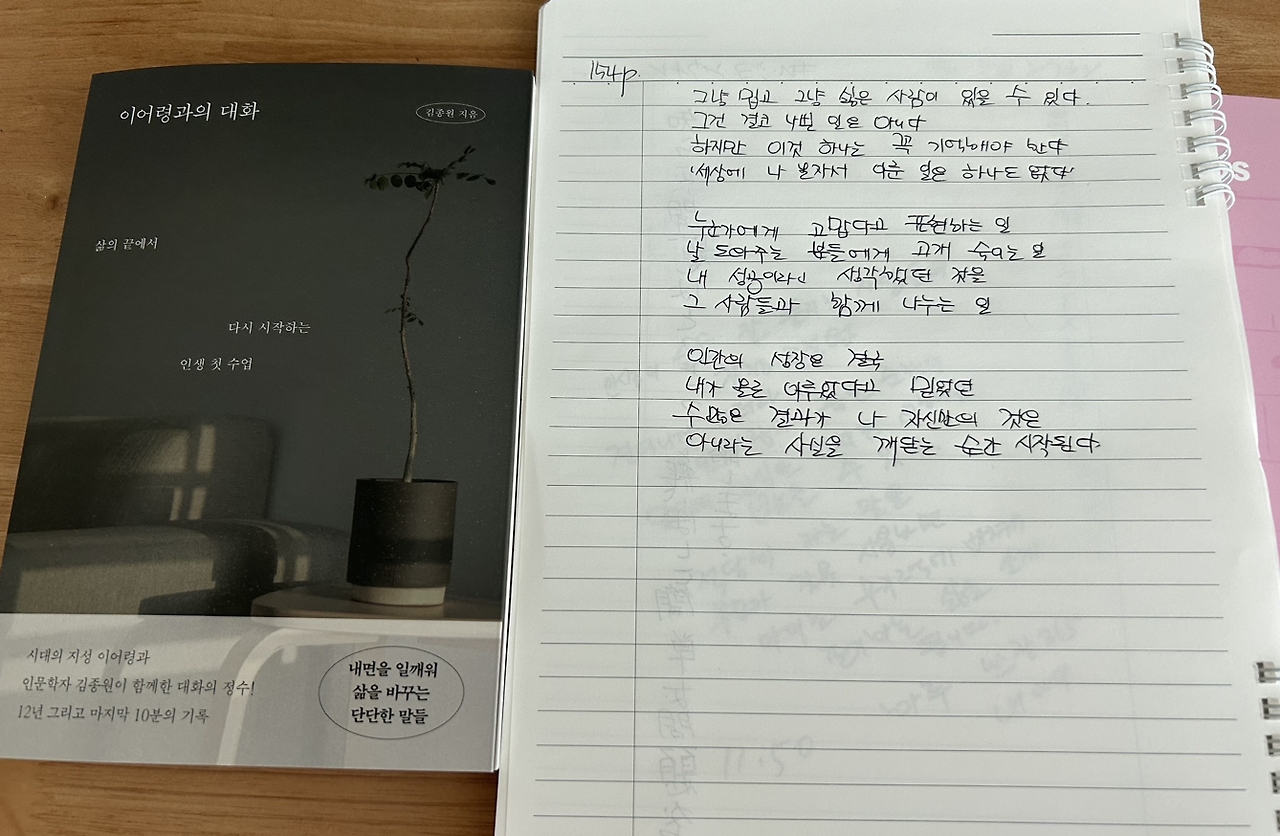 이어령과의 대화
김종원 지음
삶의 끝에서
다시 시작하는
인생 첫 수업
시대의 지성 이어령과
인문학자 김종원이 함께한 대화의 정수!
12년 그리고 마지막 10분의 기록
내면을 일깨워
삶을 바꾸는
단단한 말들
154p.
그냥 밉고 그냥 싫은 사람이 있을 수 있다.
그건 결코 나쁜 일은 아니다
하지만 이것 하나는 꼭 기억해야 한다
'세상에 나 혼자서 이룬 일은 하나도 없다'
누군가에게 고맙다고 표현하는 일
날 도와주는 분들에게 고개 숙이는 일
내 성공이라고 생각했던 것을
그 사람들과 함께 나누는 일
인간의 성장은 결국
내가 홀로 이루었다고 믿었던
수많은 결과가 나 자신만의 것은
아니라는 사실을 깨닫는 순간 시작된다